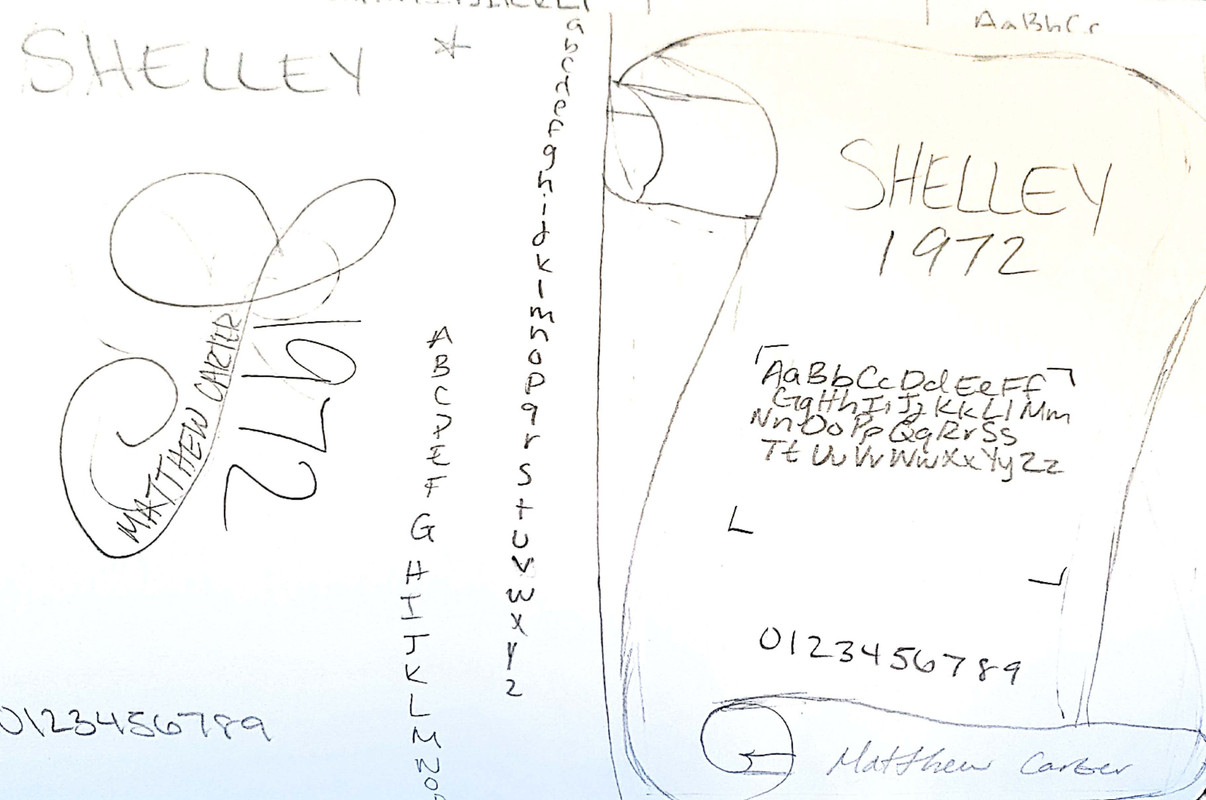 AaBbCc
SHELLEY
MATTHEW CARTER
1972
A
B
C
D
E
F
G
H
I
J
K
L
M
N
O
P
a
b
c
d
e
f
g
h
i
j
k
l
m
n
o
p
q
r
s
t
u
v
w
x
y
z
0123456789
SHELLEY
1972
AaBbCcDdEeFf
GgHhIiJjKkLlMm
NnOoPpQqRrSs
TtUuVvWwXxYyZz
0123456789
Matthew Carter